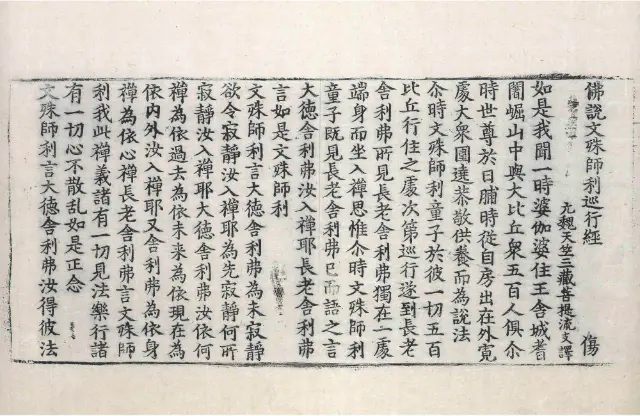 佛說文殊師利巡行經 傷
元魏天竺三藏菩提流支譯
如是我聞一時婆伽婆住王舍城耆
闍崛山中與大比丘衆五百人俱尒
時世尊於日晡時從自房出在外寬
處大衆圍遶恭敬供養而為說法
尒時文殊師利童子於彼一切五百
比丘行住之處次第巡行遂到長老
舍利弗所見長老舍利弗獨在一處
端身而坐入禪思惟尒時文殊師利
童子既見長老舍利弗已而語之言
大德舍利弗汝入禪耶長老舍利弗
言如是文殊師利
文殊師利言大德舍利弗為未寂靜
欲令寂靜汝入禪耶為先寂靜何所
寂靜汝入禪耶大德舍利弗汝依何
禪為依過去為依未來為依現在為
依內外汝入禪耶又舍利弗為依身
禪為依心禪長老舍利弗言文殊師
利我此禪義諸有一切見法樂行諸
有一切心不散乱如是正念
文殊師利言大德舍利弗汝得彼法